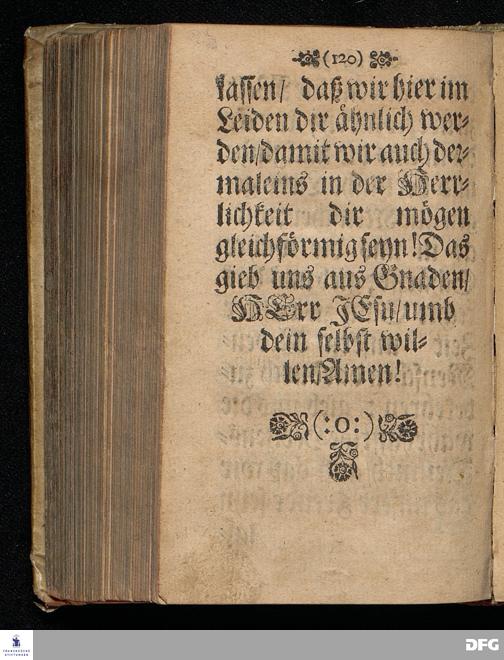 (120)
lassen/ daß wir hier im
Leiden dir ähnlich wer-
den/damit wir auch der-
maleins in der Herr-
lichkeit dir mögen
gleichförmig seyn! Das
gieb uns aus Gnaden/
HErr JEsu/umb
dein selbst wil-
len/Amen!
(:o:)
FRANCKESCHE
STIFTUNGEN
DFG